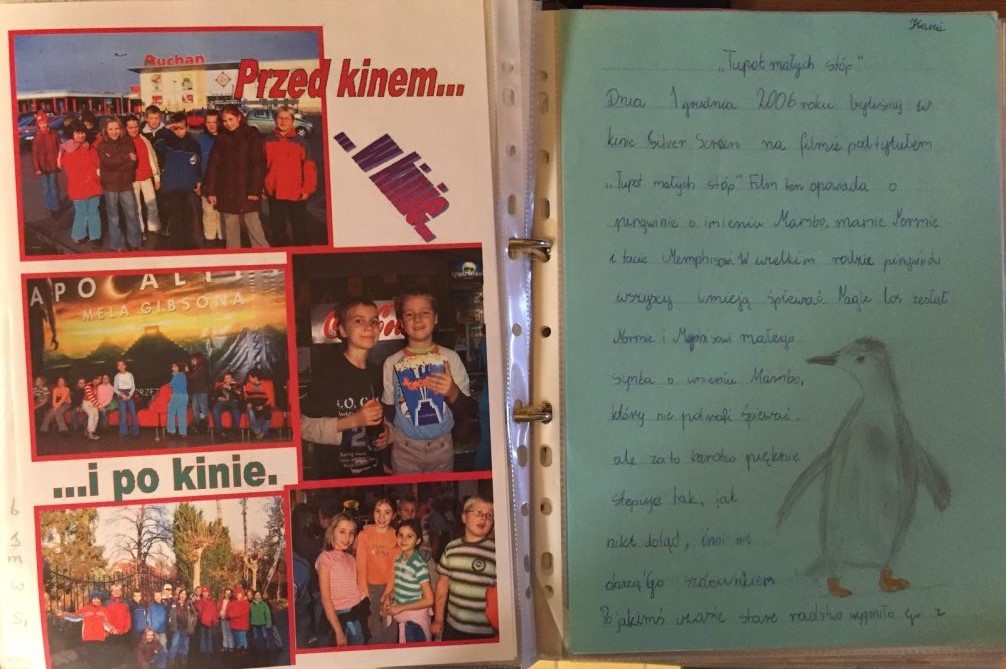 Auchan
Przed kinem...
... w kinie...
APOCALY
MELA GIBSONA
PRZET
Coca
...i po kinie.
Kasia
„Tupot małych stóp”
Dnia 1 grudnia 2006 roku byliśmy w
kinie Silver Screen na filmie pod tytułem
„Tupot małych stóp”. Film ten opowiada o
pingwinie o imieniu Mambo, mamie Normie
i tacie Memphisowi. W wielkim rodzie pingwinów
wszyscy umieją śpiewać. Magic los zesłał
Normie i Mephisowi małego
synka o imieniu Mambo,
który nie potrafi śpiewać.
ale za to bardzo pięknie
stepuje tak, jak
nikt dotąd, inni nie
darzą Go szacunkiem
Po jakimś czasie stare radztwo wygniło Go z